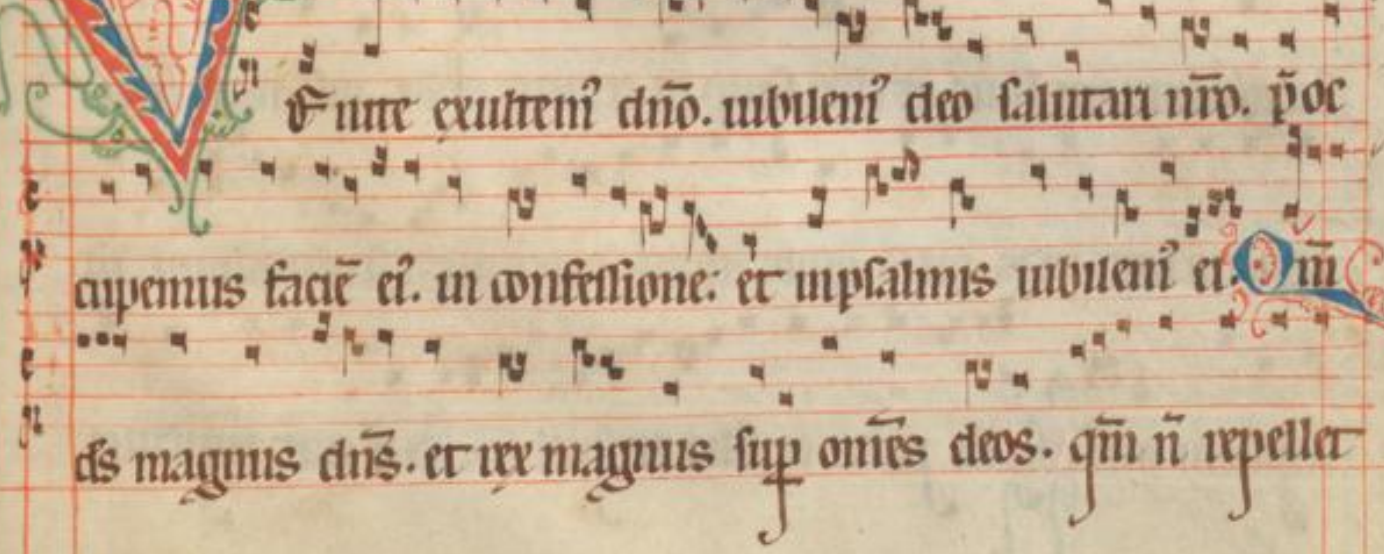 VEnite exultemꝰ dn̄o. iubilemꝰ deo salutari nr̄o. p̄oc
cupemus faciē eiꝰ. in confessione: et inpsalmis iubilemꝰ ei. Qm̄
ds magnus dn̄s. et rex magnus suꝑ om̄es deos. qm̄ n̄ repellet